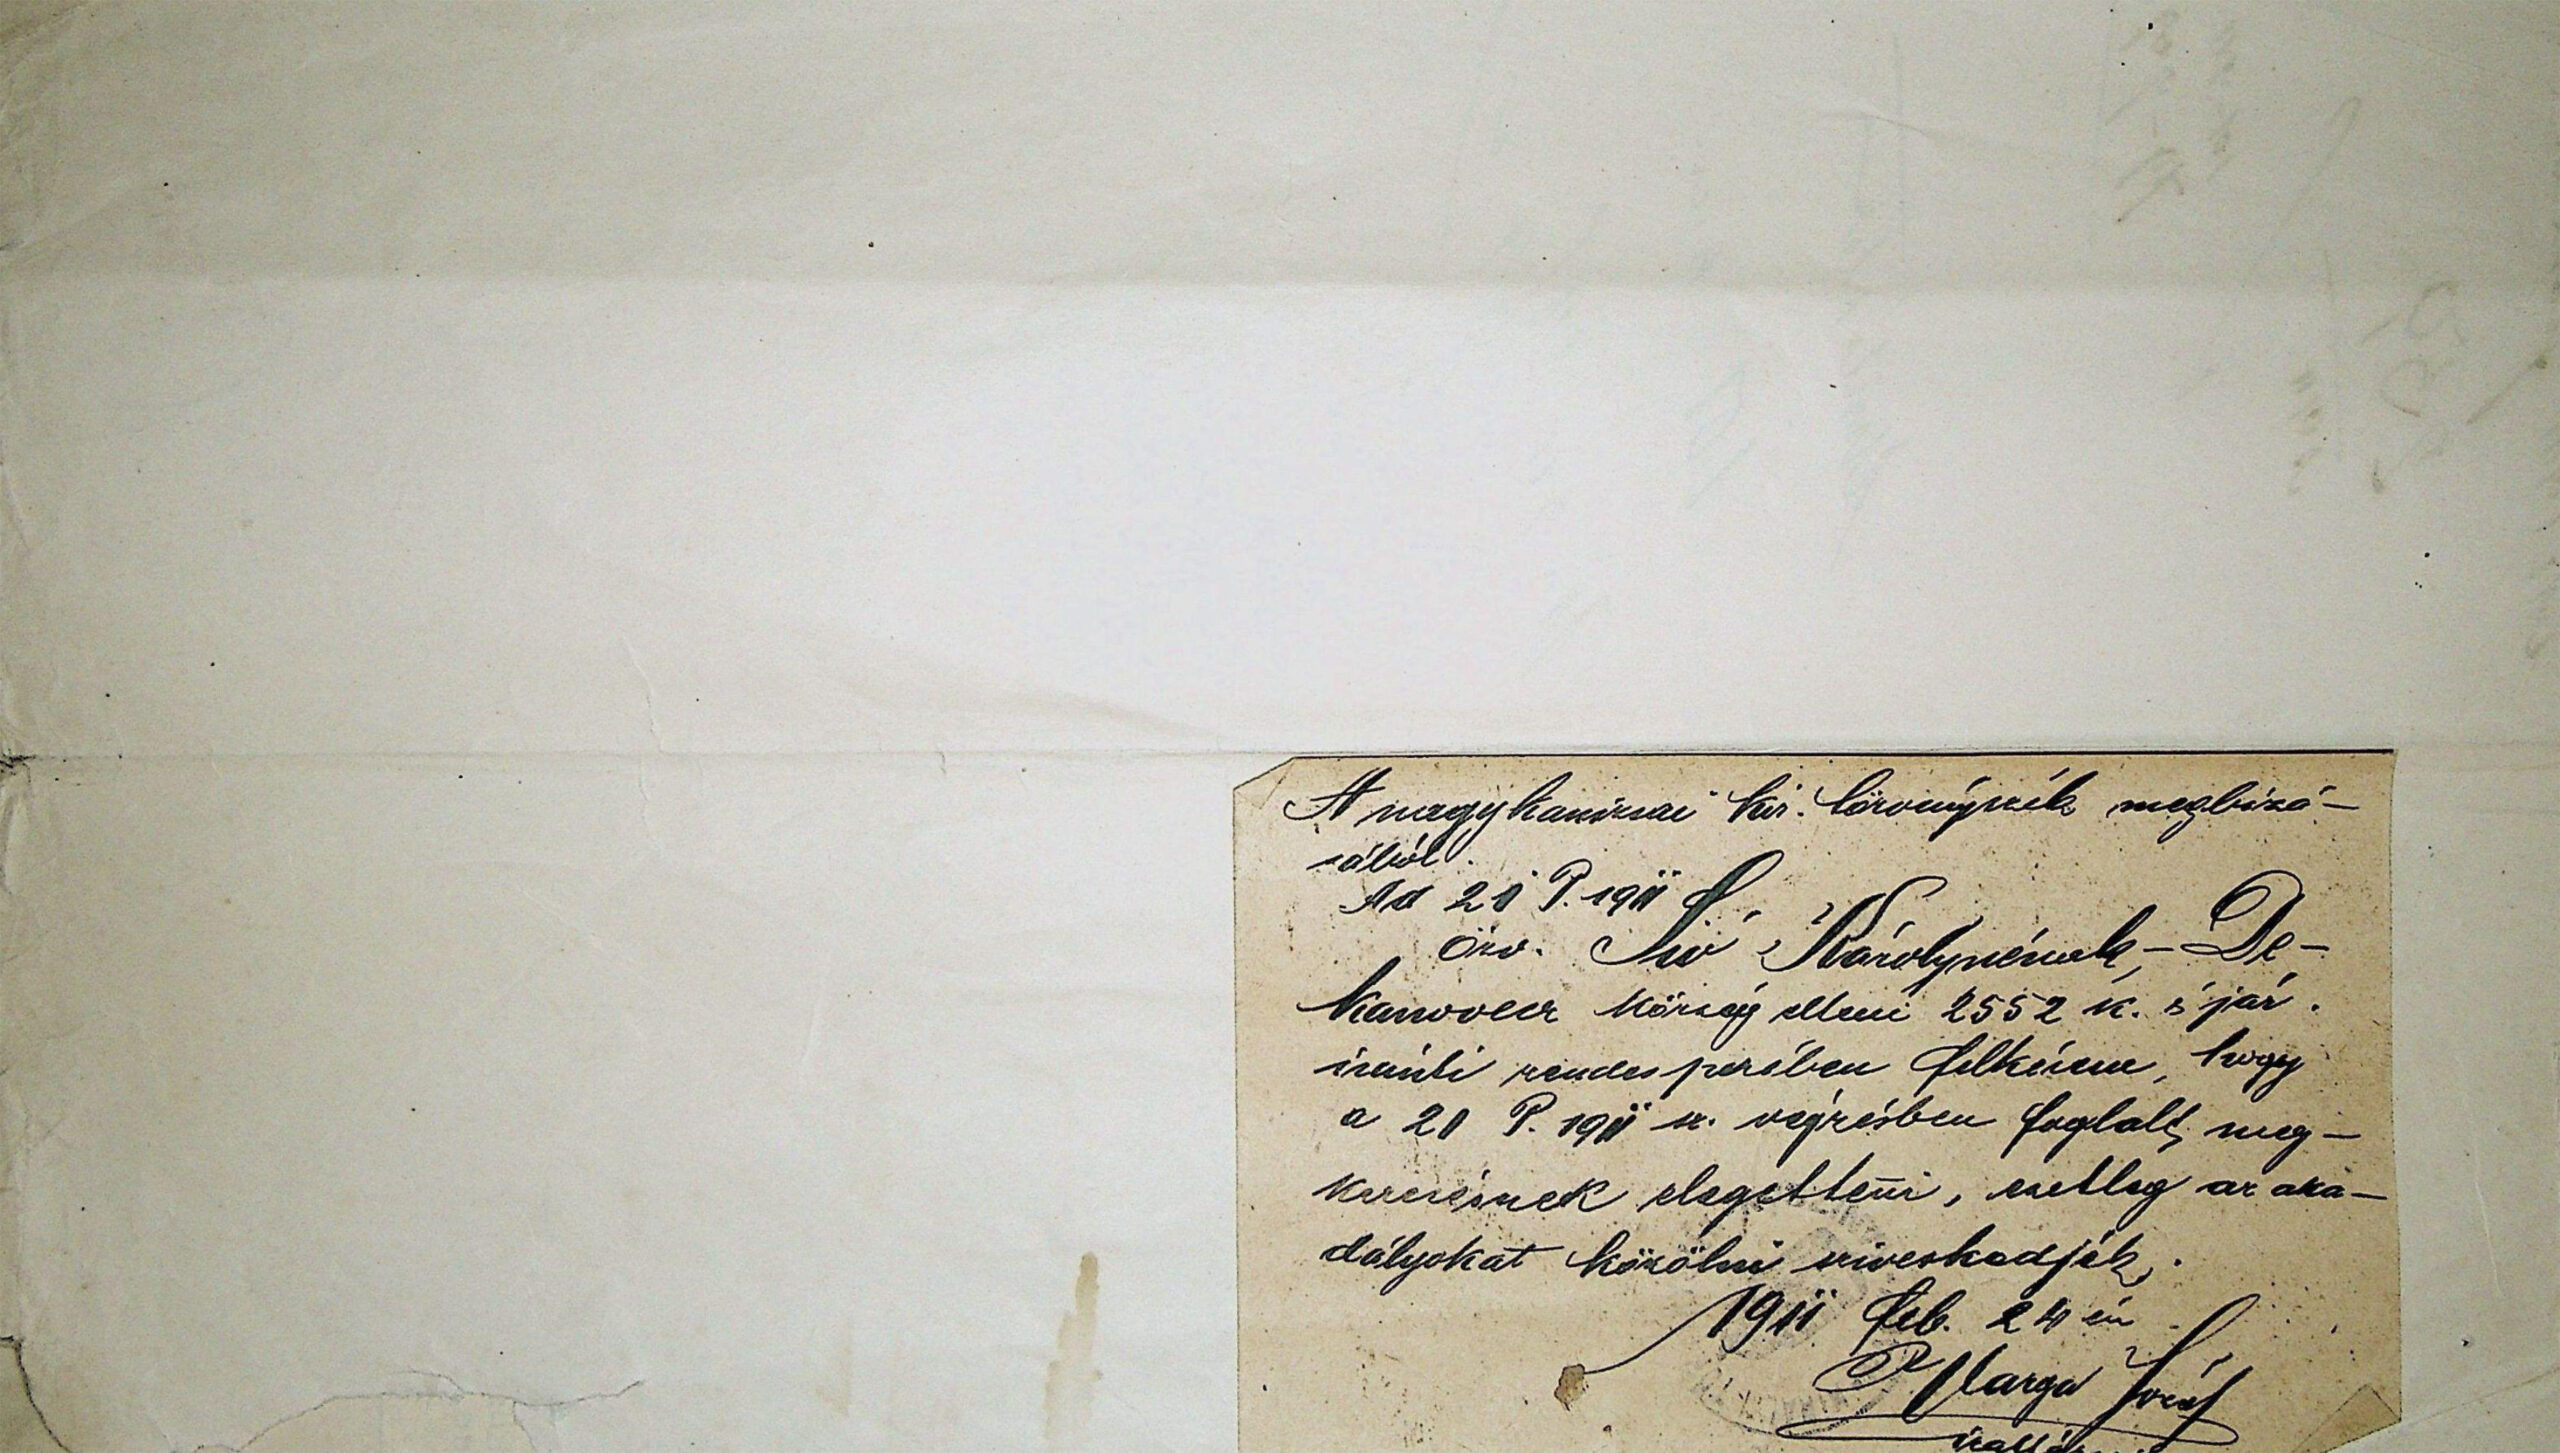 A nagykanizsai kir. törvényszék megbizá-
sából.
Ad 21 P. 1911
özv. Sió Károlynénak, - De-
kanovecz község elleni 2552 K. s jár.
iránti rendes perében felkérem, hogy
a 21 P. 1911 sz. végzésben foglalt meg-
keresésnek elegettenni, esetleg az aka-
dályokat közölni sziveskedjék.
1911 feb. 24 én
P Varga József